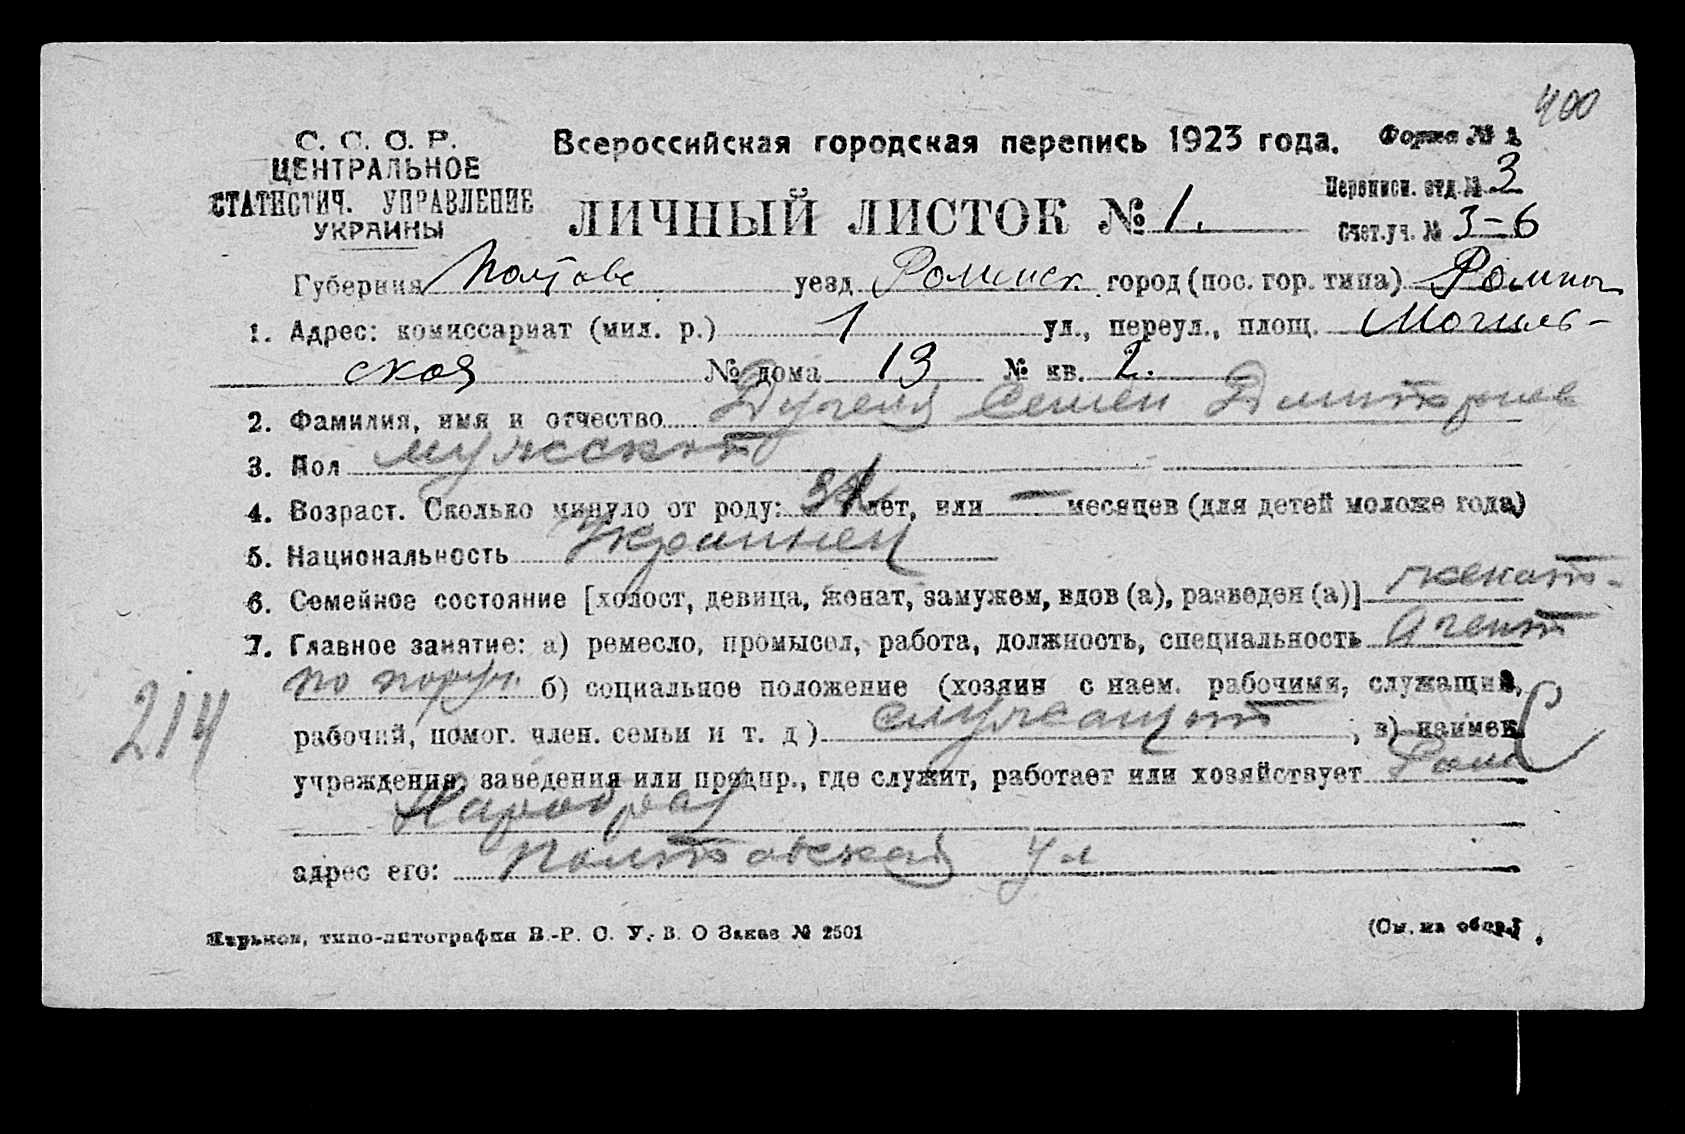 400
С. С. С. Р.
ЦЕНТРАЛЬНОЕ
СТАТИСТИЧ. УПРАВЛЕНИЕ
УКРАИНЫ
Всероссийская городская перепись 1923 года. Форма № 1
ЛИЧНЫЙ ЛИСТОК № 1.
Переписн. отд. № 3
Счет.уч. № 3-6
Губерния Полтавс уезд Роменск город (пос. гор. типа) Ромны
1. Адрес: комиссариат (мил. р.) 1 ул., переул., площ. Могилев-
ская № дома 13 № кв. 2.
2. Фамилия, имя и отчество Семен Дмитриев
3. Пол мужской
4. Возраст. Сколько минуло от роду: лет, или — месяцев (для детей моложе года)
5. Национальность Украинец
6. Семейное состояние [холост, девица, женат, замужем, вдов (а), разведен (а)] женат.
7. Главное занятие: а) ремесло, промысел, работа, должность, специальность Агент
по поруч. б) социальное положение (хозяин с наем. рабочими, служащий,
рабочий, помог. член. семьи и т. д.) служащий; в) наимен.
учреждения, заведения или предпр., где служит, работает или хозяйствует
Наробраз
адрес его: Полтовская ул
214
Харьков, типо-литография В.-Р. С. У. В. О Заказ № 2501
(См. на обор.)